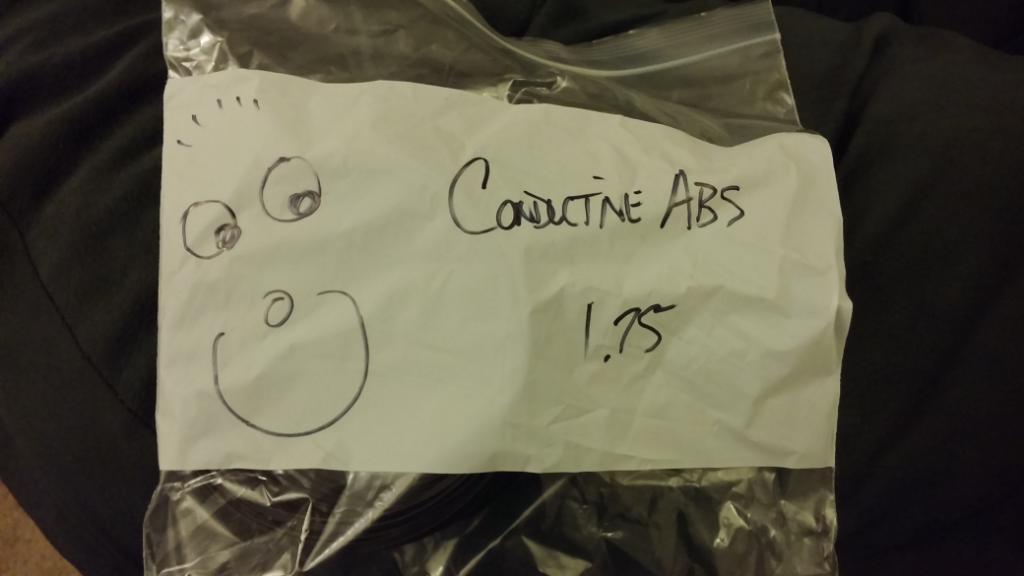 CONDUCTIVE ABS
1.75